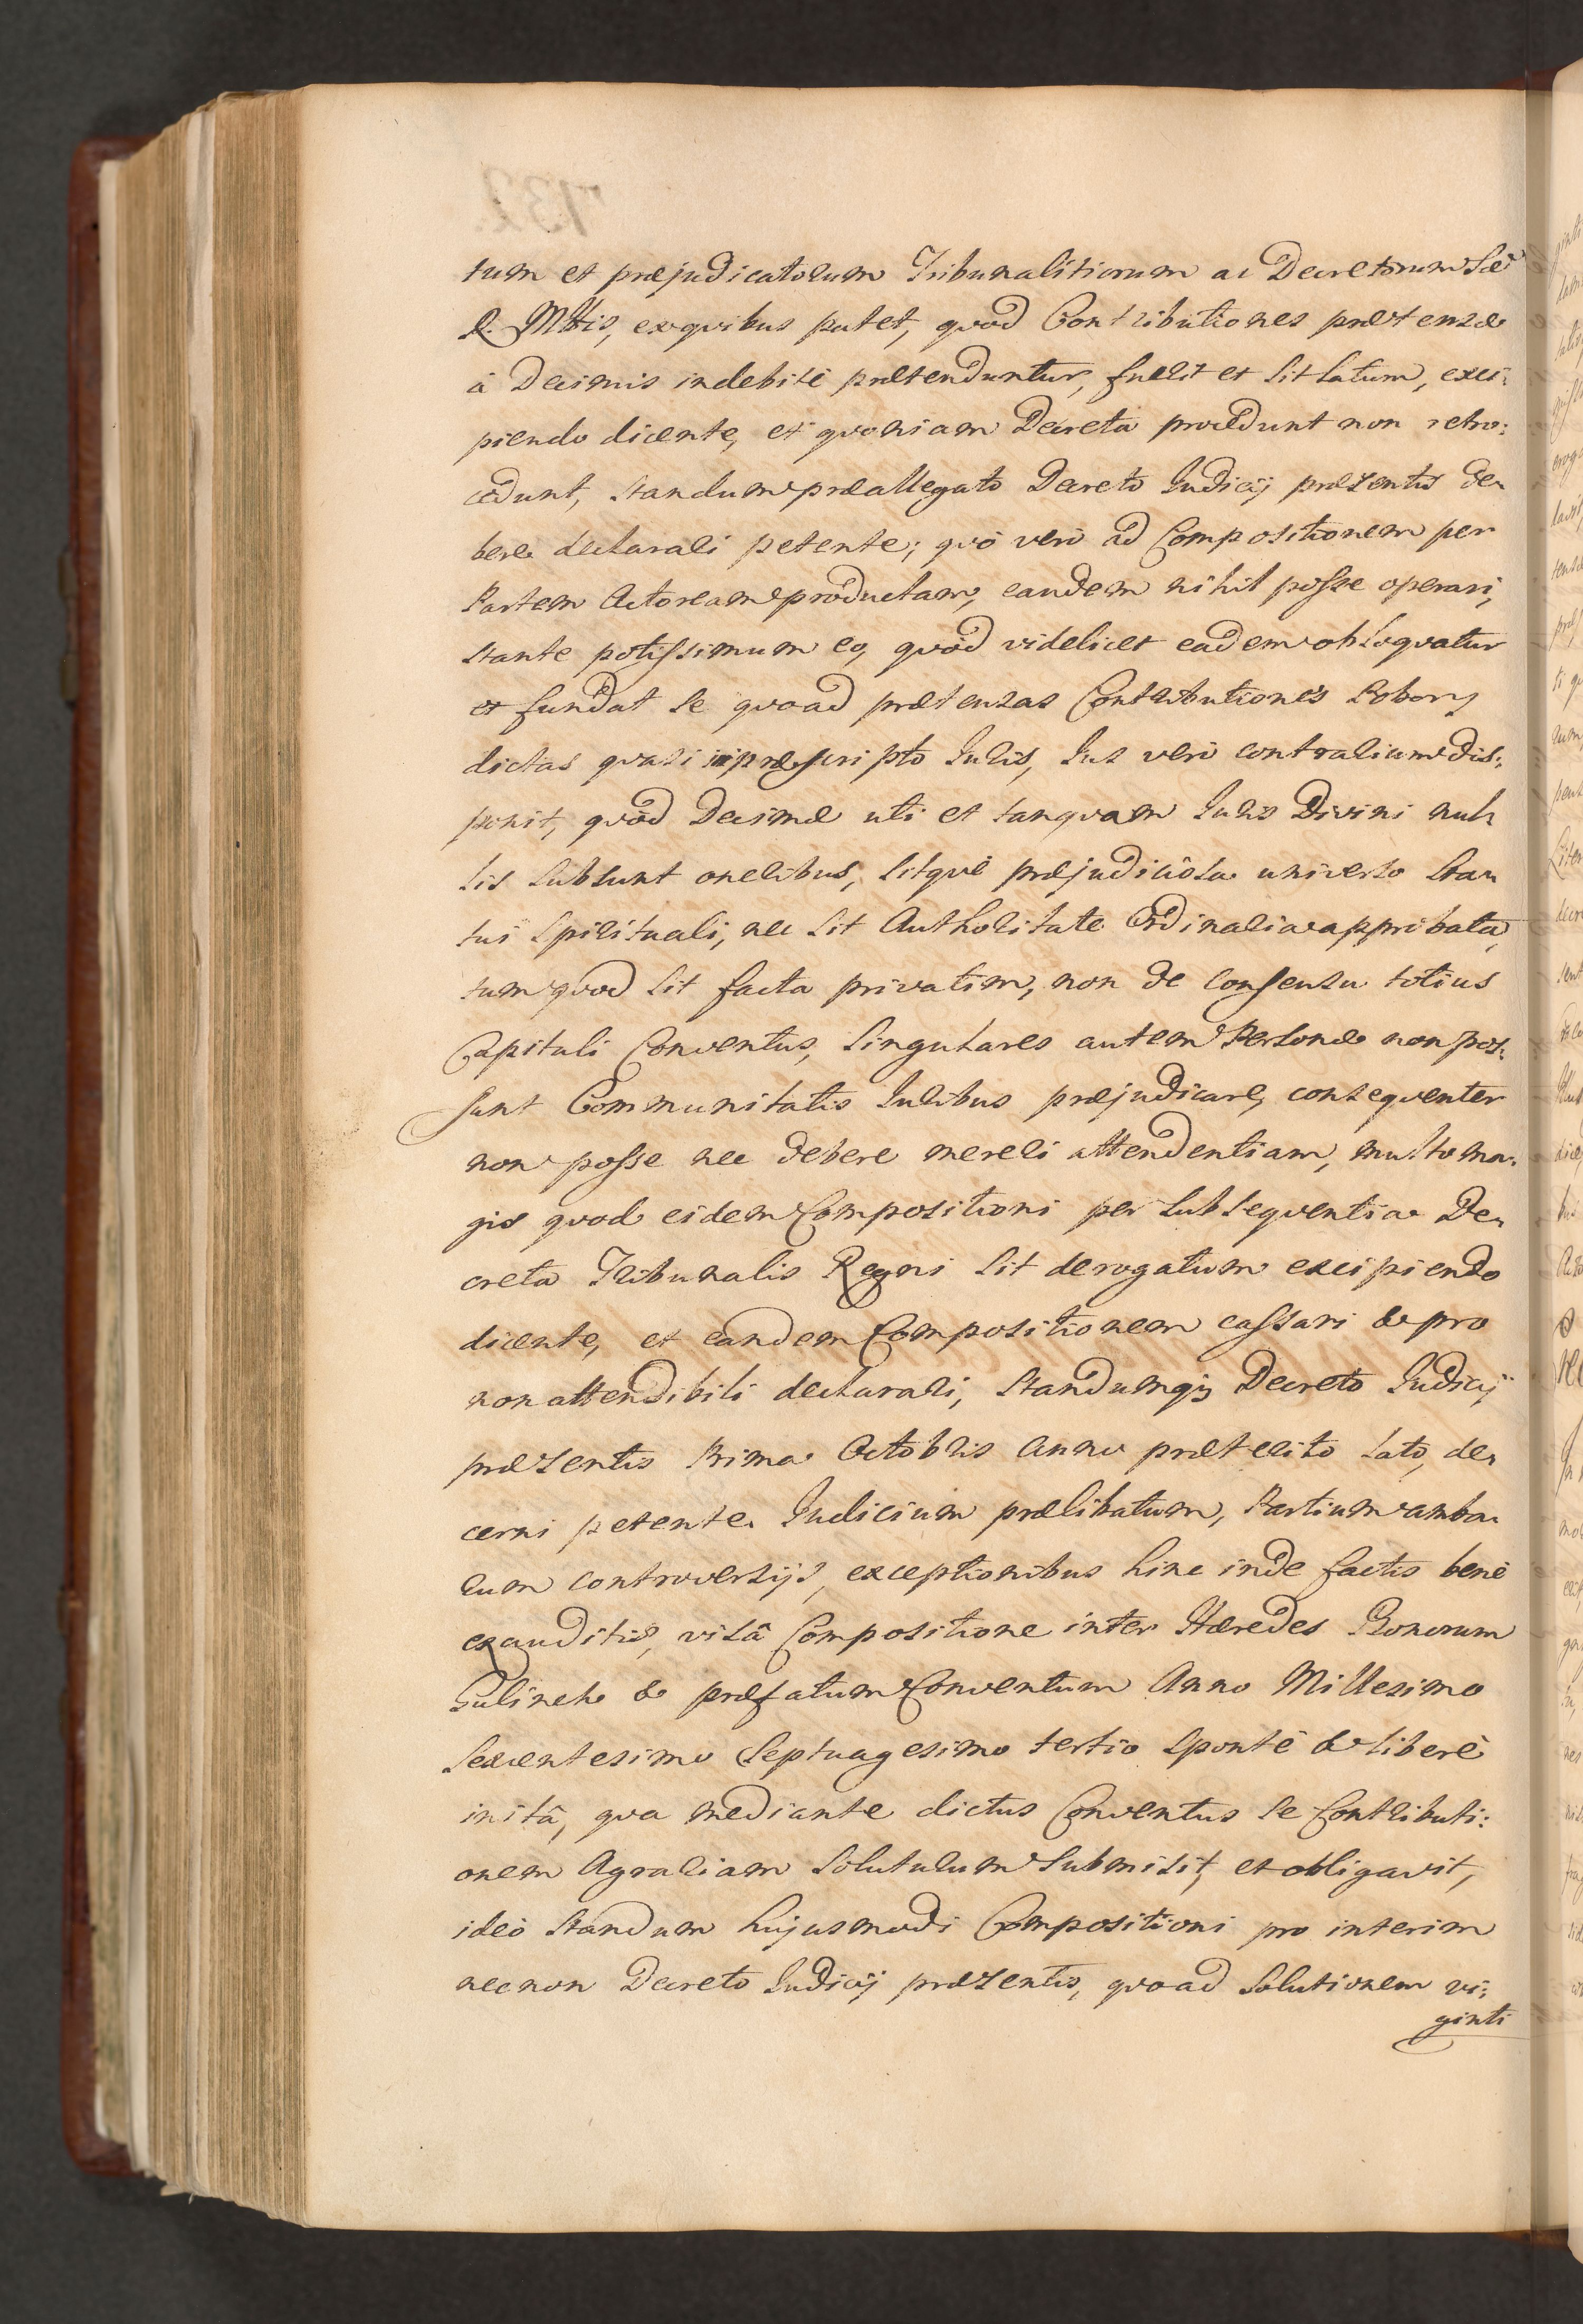 tum et præjudicatorum Tribunalitiorum ac Decretorum Sæ
R. Mttis, exqvibus patet, qvod Contributiones prætensæ
à Decimis indebitè prætenduntur, fuerit et sit latum, exci:
piendo dicente, et qvoniam Decreta procedunt non retro:
cedunt, standum præallegato Decreto Judicij præsentis de
bere declarari petente; qvò verò ad Compositionem per
Partem Actoream productam, eandem nihil posse operari,
stante potissimum eo, qvòd videlicet eadem obloqvatur
et fundat se qvoad prætensas Contributiones Pobory
dictas qvasi in præscripto Juris, Jus verò contrarium dis:
ponit, qvòd Decimæ uti et tanqvam Juris Divini nul
lis subsunt oneribus, sitqve præjudiciosa universo Sta
tui Spirituali, nec sit Authoritate Ordinaria approbata,
tum qvod sit facta privatim, non de consensu totius
Capituli Conventus, singulares autem Personæ non pos:
sunt Communitatis Juribus præjudicare, conseqventer
non posse nec debere mereri attendentiam, multo ma:
gis qvod eidem Compositioni per subseqventia De
creta Tribunalis Regni sit derogatum excipiendo
dicente, et eandem Compositionem cassari & pro
non attendibili declarari, standumq; Decreto Judicij
præsentis Prima Octobris Anno præterito lato, de
cerni petente. Judicium prælibatum, Partium amba
rum controversijs, exceptionibus hinc inde factis benè
exauditis, visâ Compositione inter Hæredes Bonorum
Gulinek & præfatum Conventum Anno Millesimo
Sexcentesimo Septuagesimo tertio spontè & liberè
initâ, qva mediante dictus Conventus se Contributi:
onem Agrariam soluturum submisit, et obligavit,
ideò standum hujusmodi Compositioni pro interim
necnon Decreto Judicij præsentis, qvoad solutionem vi:
ginti